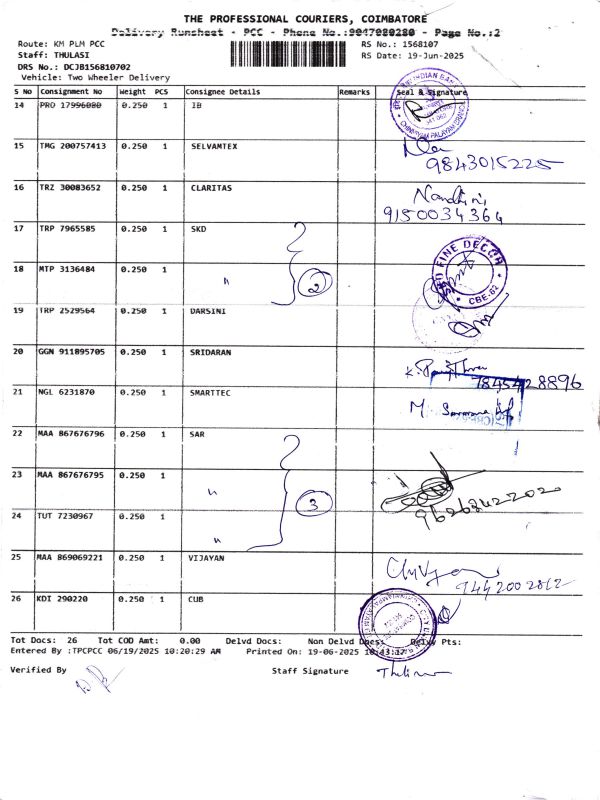 THE PROFESSIONAL COURIERS, COIMBATORE
Delivery Runsheet - PCC - Phone No.:9047080280 - Page No.:2
Route: KM PLM PCC
RS No.: 1568107
Staff: THULASI
RS Date: 19-Jun-2025
DRS No.: DCJB156810702
Vehicle: Two Wheeler Delivery
S No Consignment No Weight PCS Consignee Details Remarks Seal & Signature
14 PRO 17996080 0.250 1 IB
15 TMG 200757413 0.250 1 SELVAMTEX
9843015225
16 TRZ 30083652 0.250 1 CLARITAS Nandhini
9150034364
17 TRP 7965585 0.250 1 SKD
FINE DECOR
CBE-62
18 MTP 3136484 0.250 1 " 2
19 TRP 2529564 0.250 1 DARSINI
20 GGN 911895705 0.250 1 SRIDARAN
7845428896
21 NGL 6231870 0.250 1 SMARTTEC M.
22 MAA 867676796 0.250 1 SAR
23 MAA 867676795 0.250 1 " 3
9626842202
24 TUT 7230967 0.250 1 "
25 MAA 869069221 0.250 1 VIJAYAN
9442002812
26 KDI 290220 0.250 1 CUB
Tot Docs: 26 Tot COD Amt: 0.00 Delvd Docs: Non Delvd Docs: Delvy Pts:
Entered By :TPCPCC 06/19/2025 10:20:29 AM Printed On: 19-06-2025 10:43:17
Verified By Staff Signature